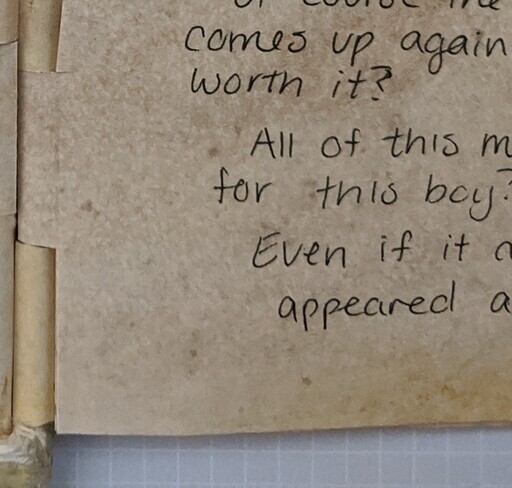 comes up again
worth it?
All of this
for this boy?
Even if it
appeared